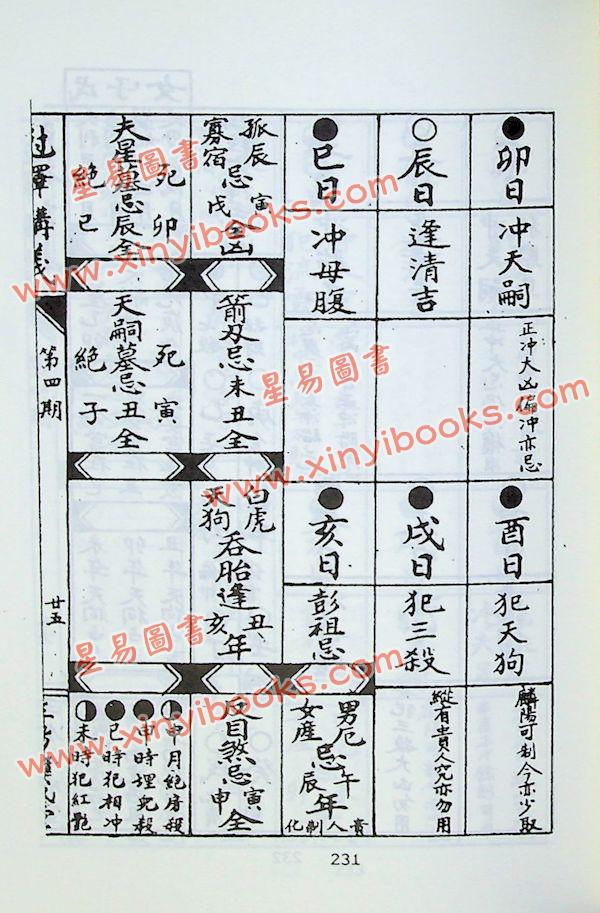 卯日
冲天嗣
正冲大凶偏冲亦忌
酉日
犯天狗
麟陽可制今亦少取
辰日
逢清吉
戌日
犯三殺
縱有貴人究亦勿用
巳日
冲母腹
亥日
彭祖忌
男厄 午
忌年
女産 辰
貴人制化
孤辰 寅
忌凶
寡宿 戌
箭刃忌未丑全
白虎 丑
吞胎逢年
天狗 亥
反目煞忌寅申全
死 卯
夫星墓忌辰全
絕 巳
死 寅
天嗣墓忌丑全
絕 子
申月絕房殺
申時埋兒殺
巳時犯相冲
未時犯紅艷
講義
第四期
廿五
231
星易圖書
www.xinyibooks.com
星易圖書
www.xinyibooks.com
星易圖書
www.xinyibooks.com